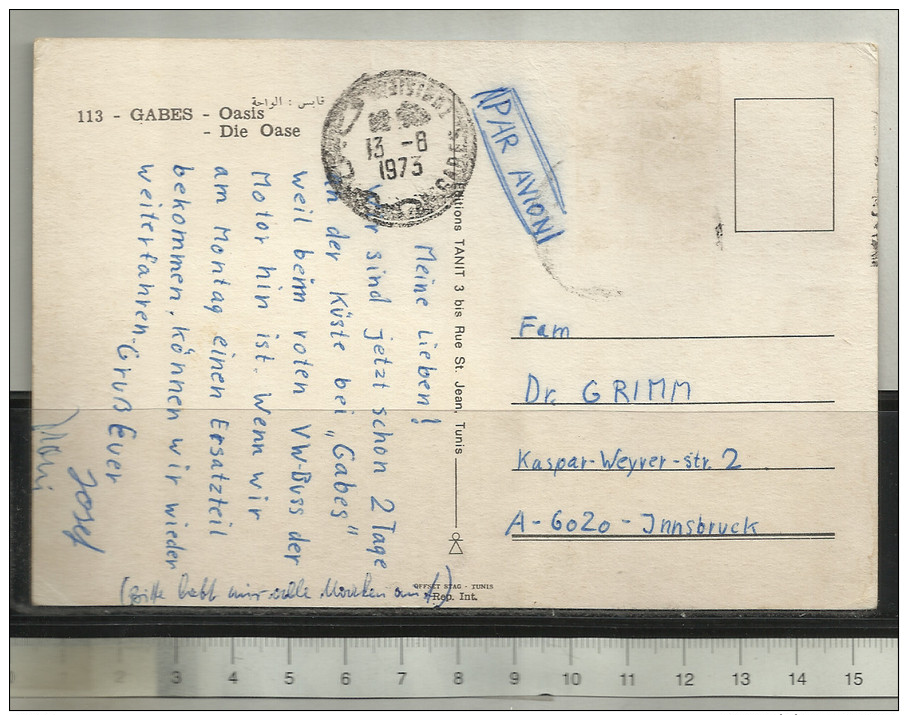 قابس : الواحة
113 - GABES - Oasis
- Die Oase
13 -8
1973
PAR AVION
Meine Lieben!
Wir sind jetzt schon 2 Tage
in der Küste bei „Gabes"
weil beim roten VW-Buss der
Motor hin ist. Wenn wir
am Montag einen Ersatzteil
bekommen, können wir wieder
weiterfahren-
Gruß Euer
Josef
(Bitte hebt mir alle Marken auf)
Editions TANIT 3 bis Rue St. Jean, Tunis
OFFSET STAG - TUNIS
Rep. Int.
Fam
Dr. GRIMM
Kaspar-Weyrer-str. 2
A-6020-Innsbruck
1 2 3 4 5 6 7 8 9 10 11 12 13 14 15